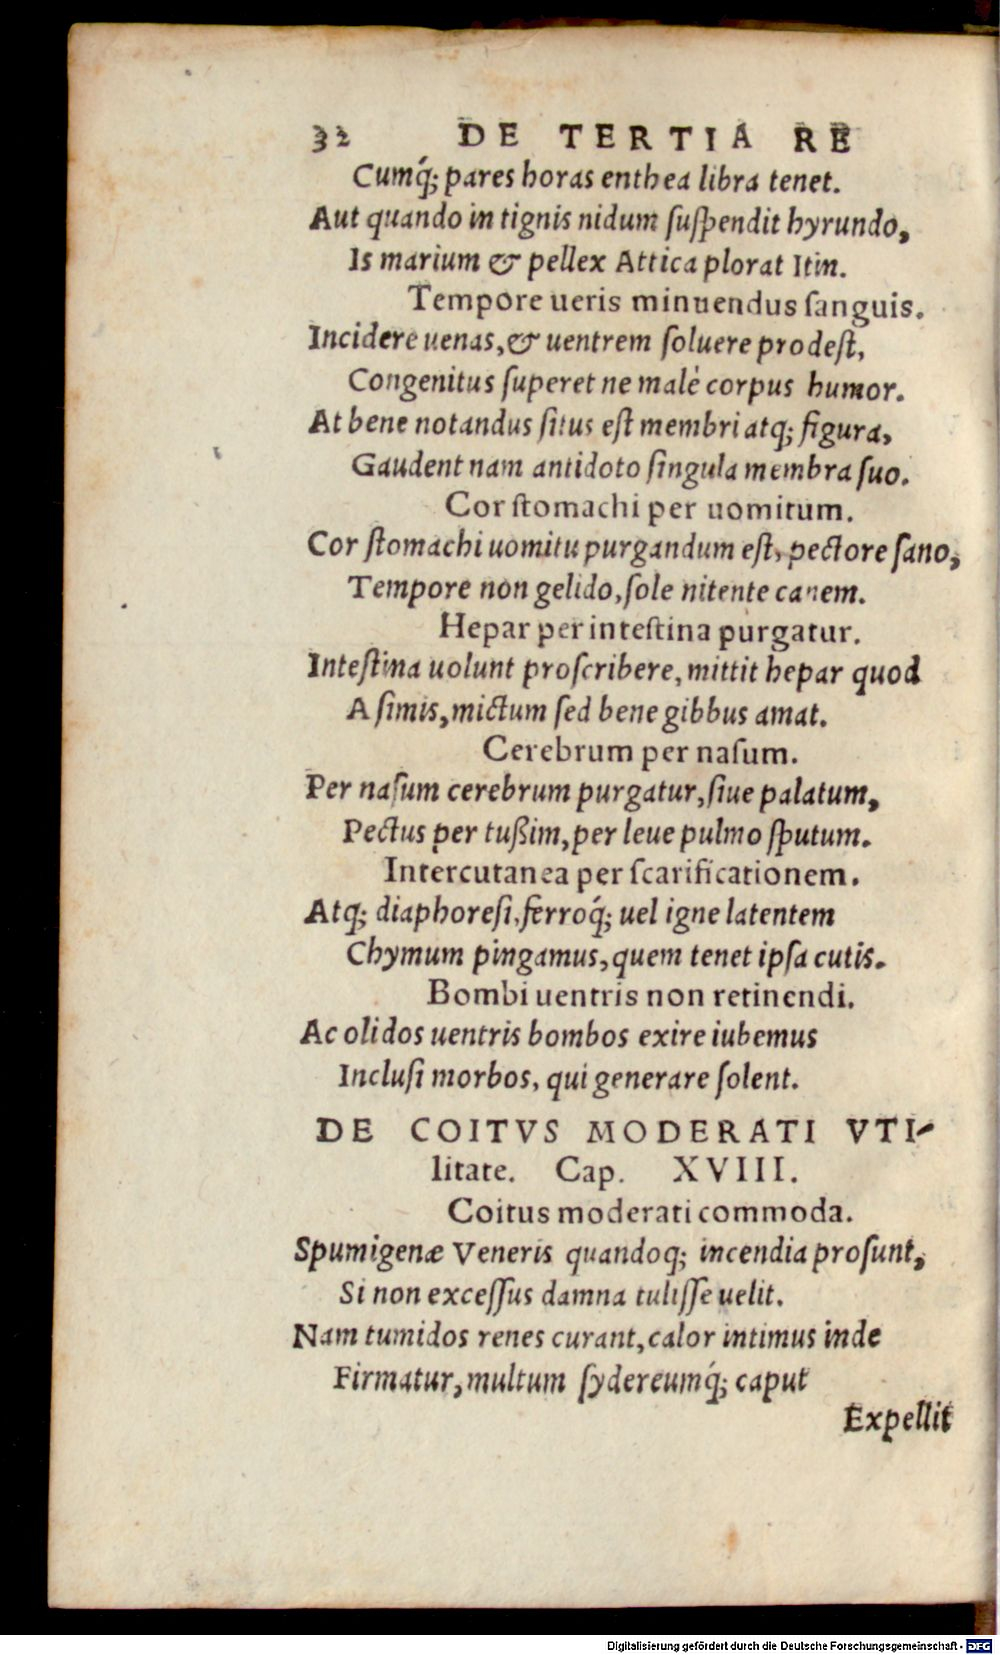 32 DE TERTIA RE
Cumq́; pares horas enthea libra tenet.
Aut quando in tignis nidum ſuſpendit hyrundo,
Is marium & pellex Attica plorat Itin.
Tempore ueris minuendus ſanguis.
Incidere uenas, & uentrem ſoluere prodeſt,
Congenitus ſuperet ne malè corpus humor.
At bene notandus ſitus eſt membri atq; figura,
Gaudent nam antidoto ſingula membra ſuo.
Cor ſtomachi per uomitum.
Cor ſtomachi uomitu purgandum eſt, pectore ſano,
Tempore non gelido, ſole nitente canem.
Hepar per inteſtina purgatur.
Inteſtina uolunt proſcribere, mittit hepar quod
A ſimis, mictum ſed bene gibbus amat.
Cerebrum per naſum.
Per naſum cerebrum purgatur, ſiue palatum,
Pectus per tußim, per leue pulmo ſputum.
Intercutanea per ſcarificationem.
Atq; diaphoreſi, ferroq́; uel igne latentem
Chymum pingamus, quem tenet ipſa cutis.
Bombi uentris non retinendi.
Ac olidos uentris bombos exire iubemus
Incluſi morbos, qui generare ſolent.
DE COITVS MODERATI VTI-
litate. Cap. XVIII.
Coitus moderati commoda.
Spumigenæ Veneris quandoq; incendia proſunt,
Si non exceſſus damna tuliſſe uelit.
Nam tumidos renes curant, calor intimus inde
Firmatur, multum ſydereumq́; caput
Expellit
Digitalisierung gefördert durch die Deutsche Forschungsgemeinschaft - DFG